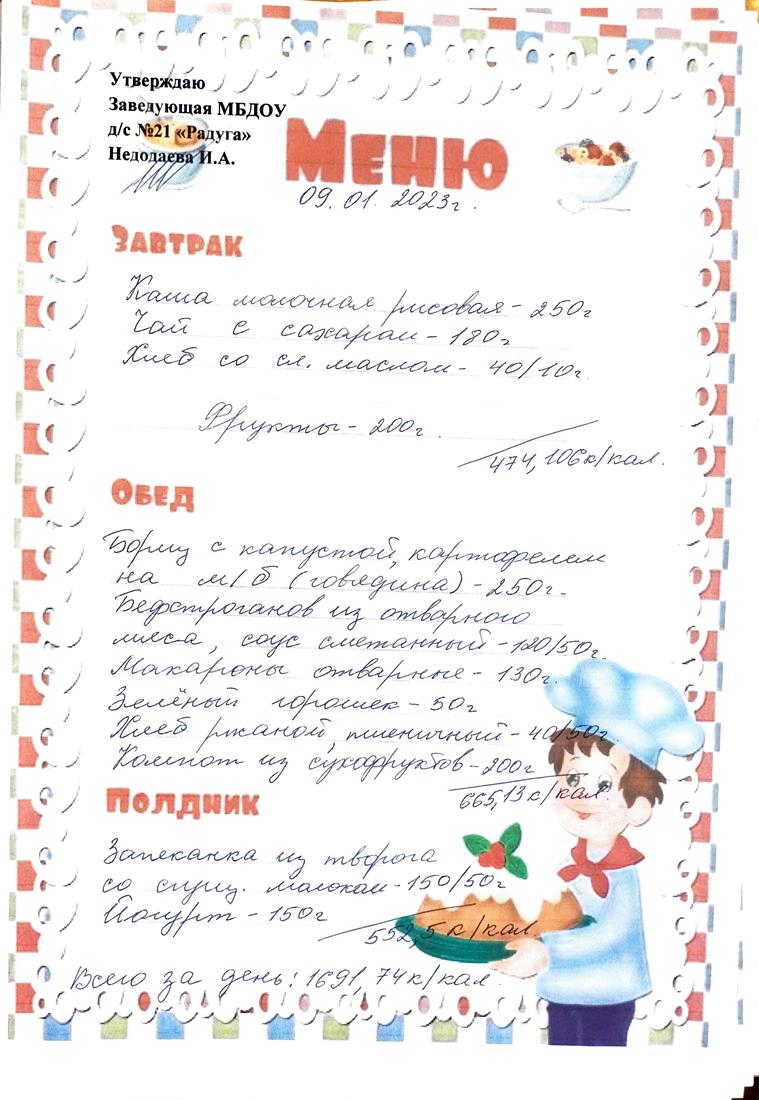 Утверждаю
Заведующая МБДОУ
д/с №21 «Радуга»
Недодаева И.А.
Меню
09.01.2023г.
Завтрак
Каша молочная рисовая - 250г
Чай с сахаром - 180г
Хлеб со сл. маслом - 40/10г.
Фрукты - 200г.
474,106к/кал.
Обед
Борщ с капустой, картофелем
на м/б (говядина) - 250г.
Бефстроганов из отварного
мяса, соус сметанный - 120/50г.
Макароны отварные - 130г.
Зелёный горошек - 50г
Хлеб ржаной, пшеничный - 40/50г.
Компот из сухофруктов - 200г
665,13к/кал.
Полдник
Запеканка из творога
со сгущ. молоком - 150/50г
Йогурт - 150г
552,5к/кал.
Всего за день: 1691,74к/кал.